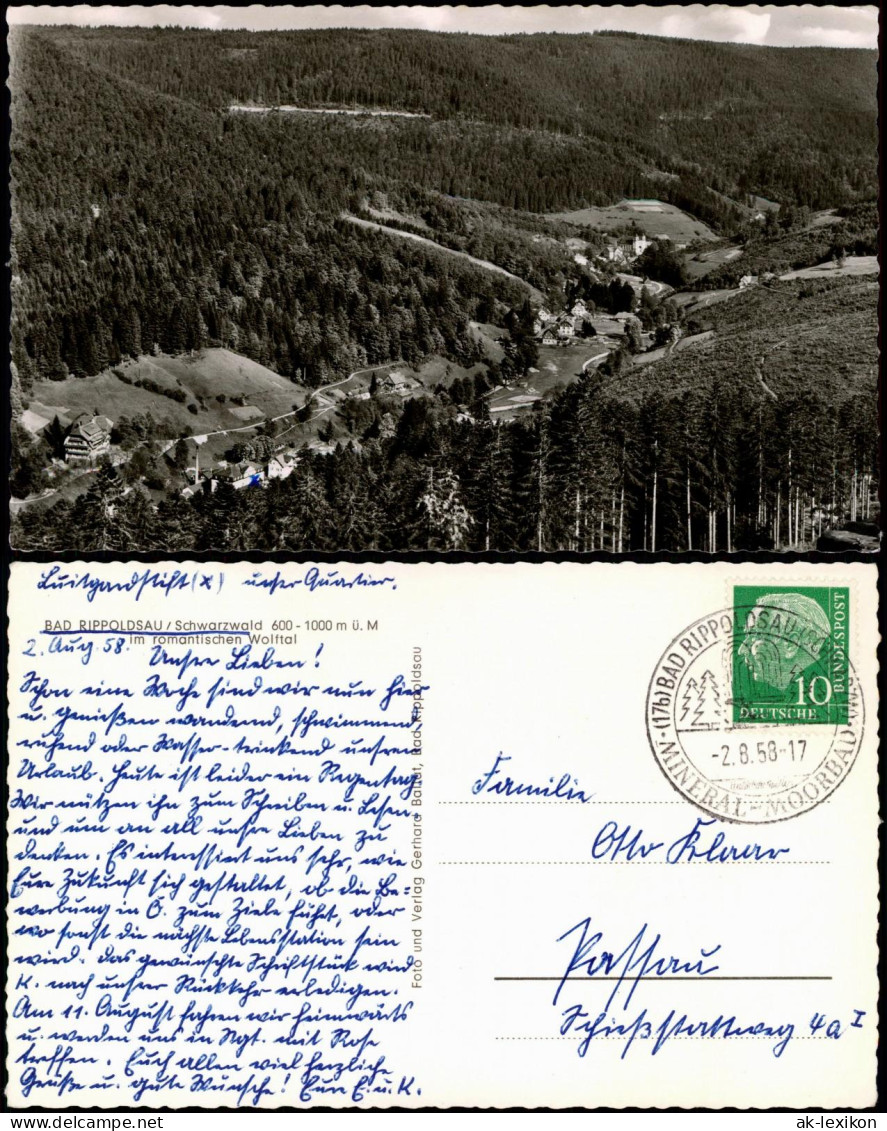 Luitgardstift (x) unser Quartier.
BAD RIPPOLDSAU / Schwarzwald 600 - 1000 m ü. M
Im romantischen Wolftal
2. Aug. 58. Unsre Lieben!
Schon eine Woche sind wir nun hier
u. genießen wandernd, schwimmend,
ruhend oder Wasser-trinkend unsren
Urlaub. Heute ist leider ein Regentag.
Wir nützen ihn zum Schreiben u. Lesen
und um an all unsre Lieben zu
denken. Es interessiert uns sehr, wie
Eure Zukunft sich gestaltet, ob die Be=
werbung in O. zum Ziele führt, oder
wo sonst die nächste Lebensstation sein
wird. Das gewünschte Schriftstück wird
K. nach unsrer Rückkehr erledigen.
Am 11. August fahren wir heimwärts
u. werden uns in Ngt. mit Rose
treffen. Euch allen viel herzliche
Grüße u. gute Wünsche! Eure E. u. K.
Foto und Verlag Gerhard Ballat, Bad Rippoldsau
DEUTSCHE
BUNDESPOST
10
(17b) BAD RIPPOLDSAU
-2.8.58-17
MINERAL-MOORBAD
Familie
Otto Klaar
Passau
Schießstattweg 4a I
ak-lexikon